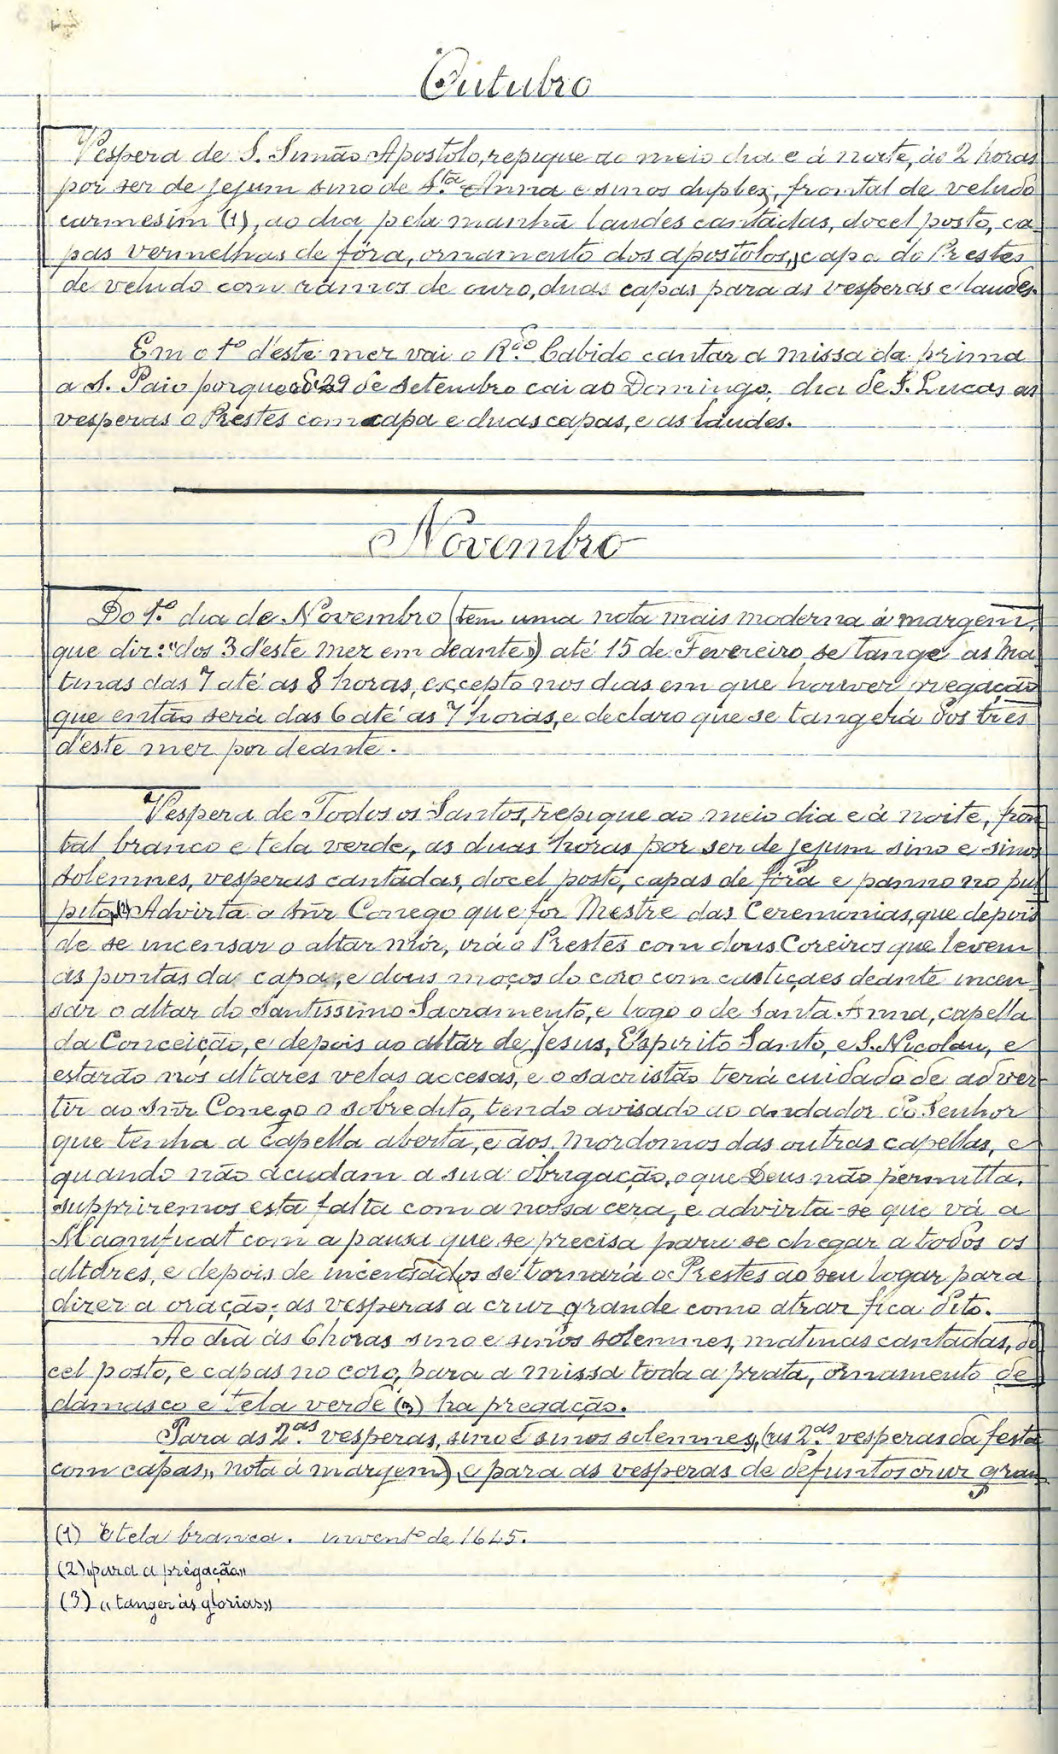 Outubro
Vespera de S. Simão Apostolo, repique ao meio dia e á noite, ás 2 horas
por ser de jejum sino de Sta Anna e sinos duplex, frontal de veludo
carmesim (1), ao dia pela manhã laudes cantadas, docel posto, ca-
pas vermelhas de fóra, ornamento dos apostolos,, capa do Prestes
de veludo com ramos de ouro, duas capas para as vesperas e laudes.
Em o 1º d'este mez vai o R.do Cabido cantar a missa da prima
a S. Paio porque 29 de Setembro cai ao Domingo, dia de S. Lucas as
vesperas o Prestes com capa e duas capas, e as laudes.
Novembro
Do 1º dia de Novembro (tem uma nota mais moderna á margem,
que diz: "dos 3 d'este mez em deante,,) até 15 de Fevereiro, se tange as Ma-
tinas das 7 até as 8 horas, excepto nos dias em que houver pregação
que então será das 6 até as 7 horas, e declaro que se tangerá dos tres
d'este mez por deante.
Vespera de Todos os Santos, repique ao meio dia e á noite, fron
tal branco e tela verde, as duas horas por ser de jejum sino e sinos
solemnes, vesperas cantadas, docel posto, capas de fóra e panno no pul
pito (2) Advirta o Snr Conego que for Mestre das Ceremonias, que depois
de se incensar o altar mór, irá o Prestes com dous Coreiros que levem
as pontas da capa, e dous moços do coro com castiçaes deante incen
sar o altar do Santissimo Sacramento, e logo o de Santa Anna, capella
da Conceição, e depois ao altar de Jesus, Espirito Santo, e S. Nicolau, e
estarão nos altares velas accesas, e o sacristão terá cuidado de adver-
tir ao Snr Conego o sobredito, tendo avisado ao andador do Senhor
que tenha a capella aberta, e aos mordomos das outras capellas, e
quando não acudam a sua obrigação, o que Deus não permitta,
suppriremos esta falta com a nossa cera, e advirta-se que vá a
Magnificat com a pausa que se precisa para se chegar a todos os
altares, e depois de incensados se tornará o Prestes ao seu logar para
dizer a oração; as vesperas a cruz grande como atraz fica dito.
Ao dia ás 6 horas sino e sinos solemnes, matinas cantadas, do
cel posto, e capas no coro, para a missa toda a prata, ornamento de
damasco e tela verde (3) ha pregação.
Para as 2.as vesperas, sino e sinos solemnes, (as 2.as vesperas da festa
com capas,, nota á margem), e para as vesperas de defuntos cruz gran
(1) E tela branca. invent.º de 1645.
(2) "para a prégação,,
(3) "tanger ás glorias,,